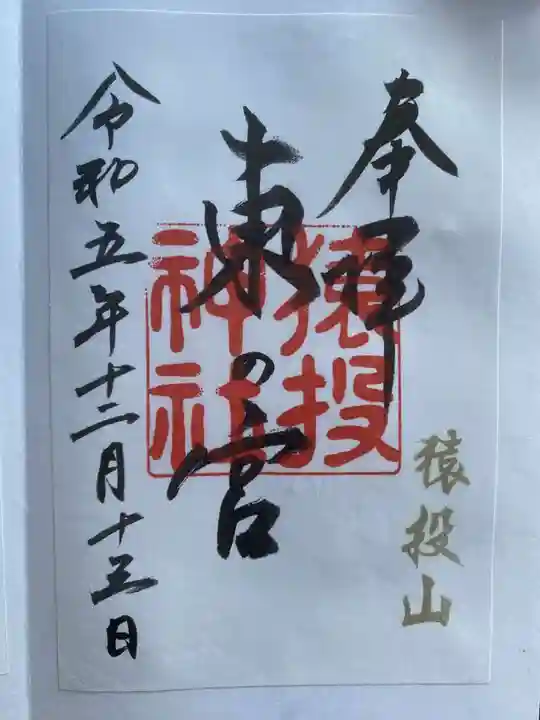 奉拝
猿投山
東の宮
猿投
神社
令和五年十二月十五日